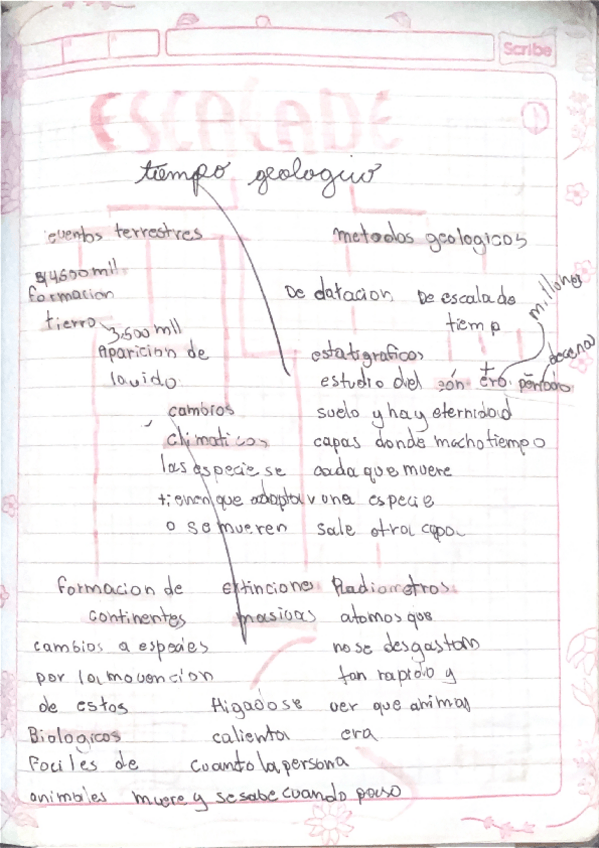 Scribe
ESCALA DE
1
tiempo geologico
eventos terrestres
metodos geologicos
4600 mil
formacion
tierra
3.500 mll
Aparicion de
la vida
De datacion
De escala de
tiemp
millones
decenas
estatigraficos
estudio del
suelo y hay
capas donde
cada que muere
una especie
sale otra capa
eón
era
periodo
eternidad
macho tiempo
cambios
climaticos
las especie se
tienen que adaptar
o se mueren
formacion de
continentes
cambios a especies
por la movencion
de estos
extinciones
masivas
Radiometros
atomos que
no se desgastan
tan rapido y
ver que animal
era
Biologicos
faciles de
animales
Higado se
calienta
cuanto la persona
muere y se sabe cuando paso